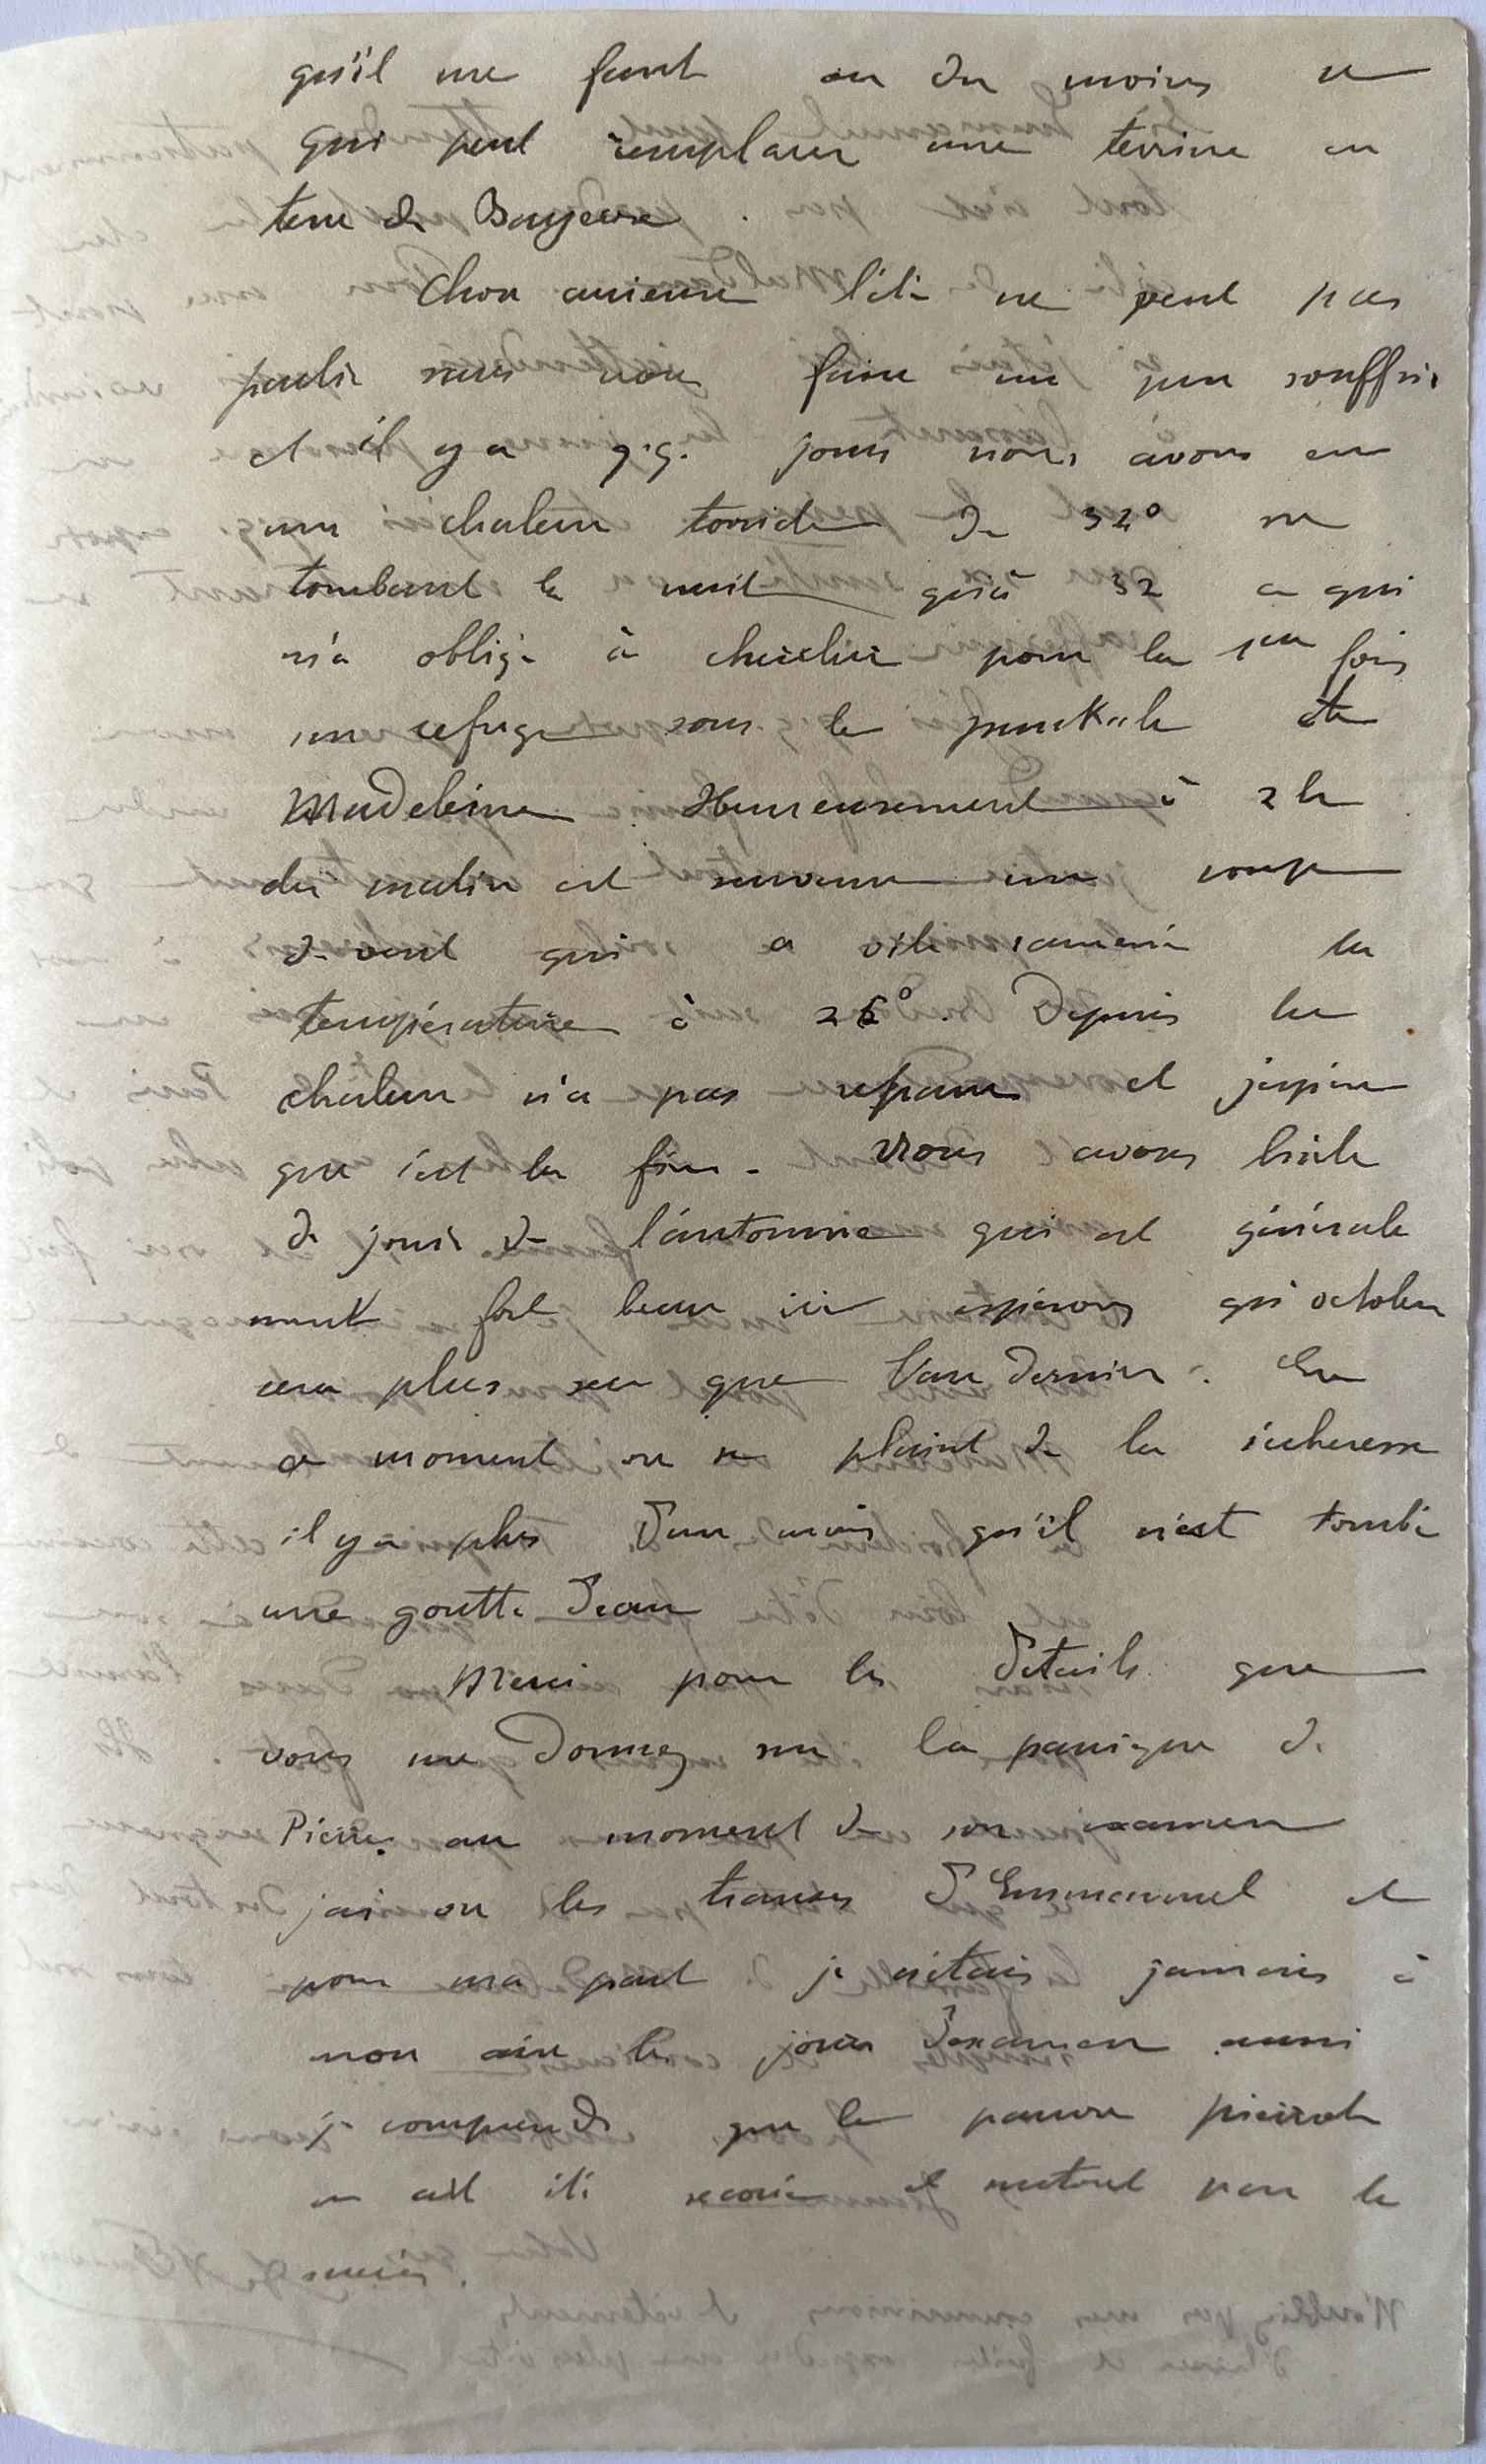 qu'il me faut ou du moins ce
qui peut remplacer une terrine en
terre de
Chose ancienne l'été ne peut pas
partir sans nous faire un peu souffrir
et il y a q.q. jours nous avons eu
une chaleur torride de 32° ne
tombant la nuit qu'à 32 ce qui
m'a obligé à chercher pour la 1ère fois
un refuge sous le punkah de
Madeleine. Heureusement à 2h
du matin est survenu un coup
de vent qui a vite ramené la
température à 26°. Depuis la
chaleur n'a pas reparu et j'espère
que c'est la fin. Nous avons hâte
de jouir de l'automne qui est générale
ment fort beau ici espérons qu'octobre
sera plus sec que l'an dernier. En
ce moment on se plaint de la sécheresse
il y a plus d'un mois qu'il n'est tombé
une goutte d'eau
Merci pour les détails que
vous me donnez sur la panique de
Pierre au moment de son examen
j'ai vu les transes d'Emmanuel et
pour ma part je n'étais jamais à
mon aise les jours d'examen aussi
je comprends que le pauvre pierrot
en ait été secoué et surtout par le
succès.